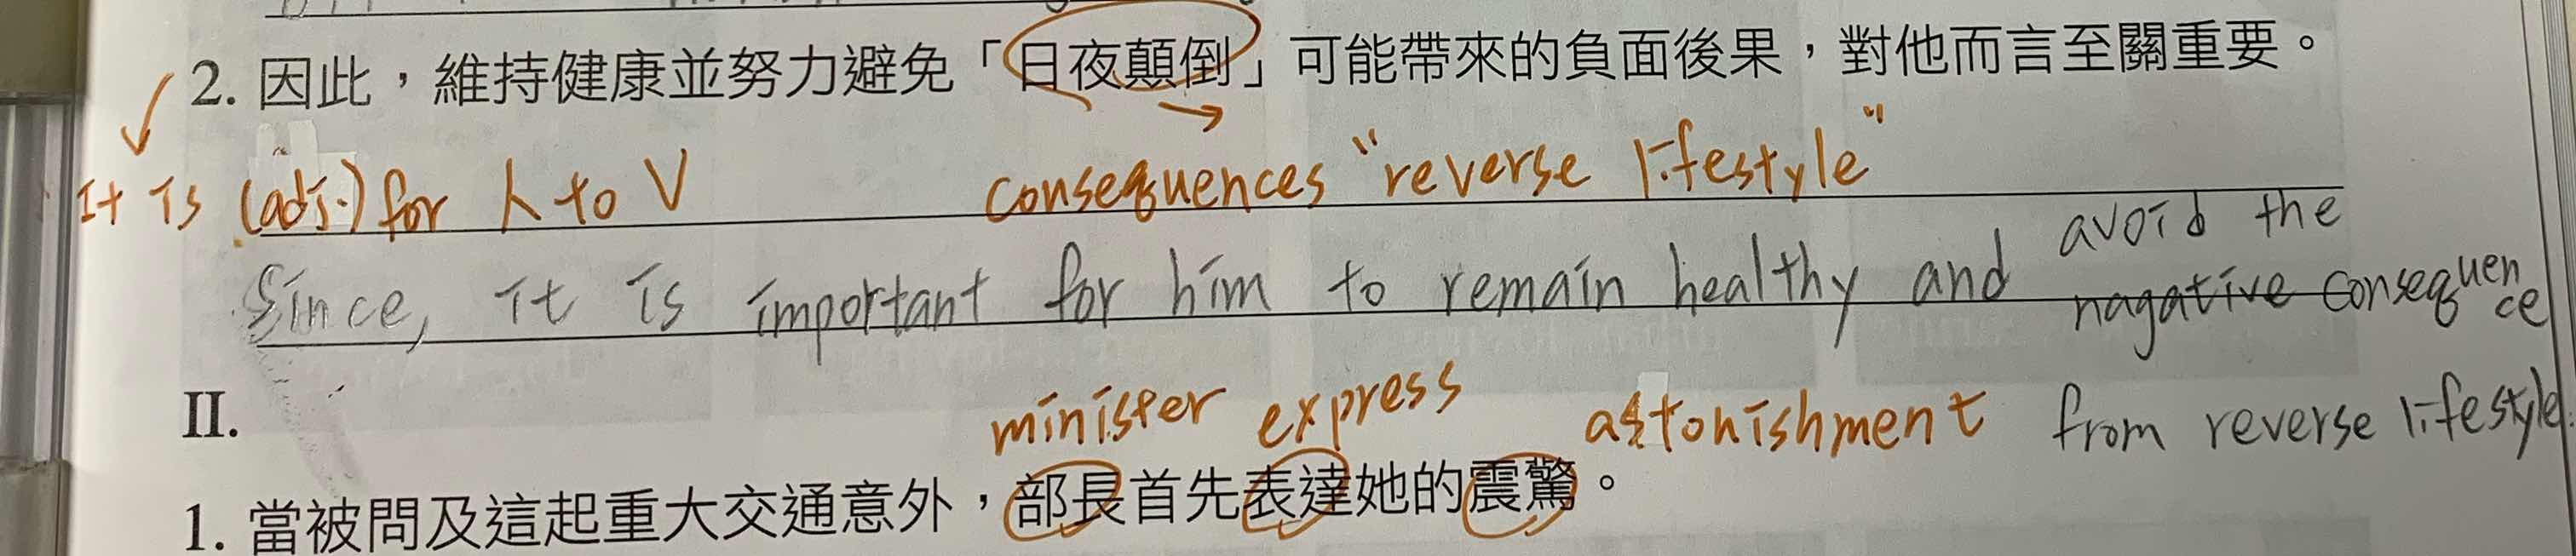 2. 因此，維持健康並努力避免「日夜顛倒」可能帶來的負面後果，對他而言至關重要。
It is (adj.) for 人 to V consequences "reverse lifestyle"
Since, it is important for him to remain healthy and avoid the
nagative consequen
ce
from reverse lifestyle.
II.
minister express astonishment
1. 當被問及這起重大交通意外，部長首先表達她的震驚。